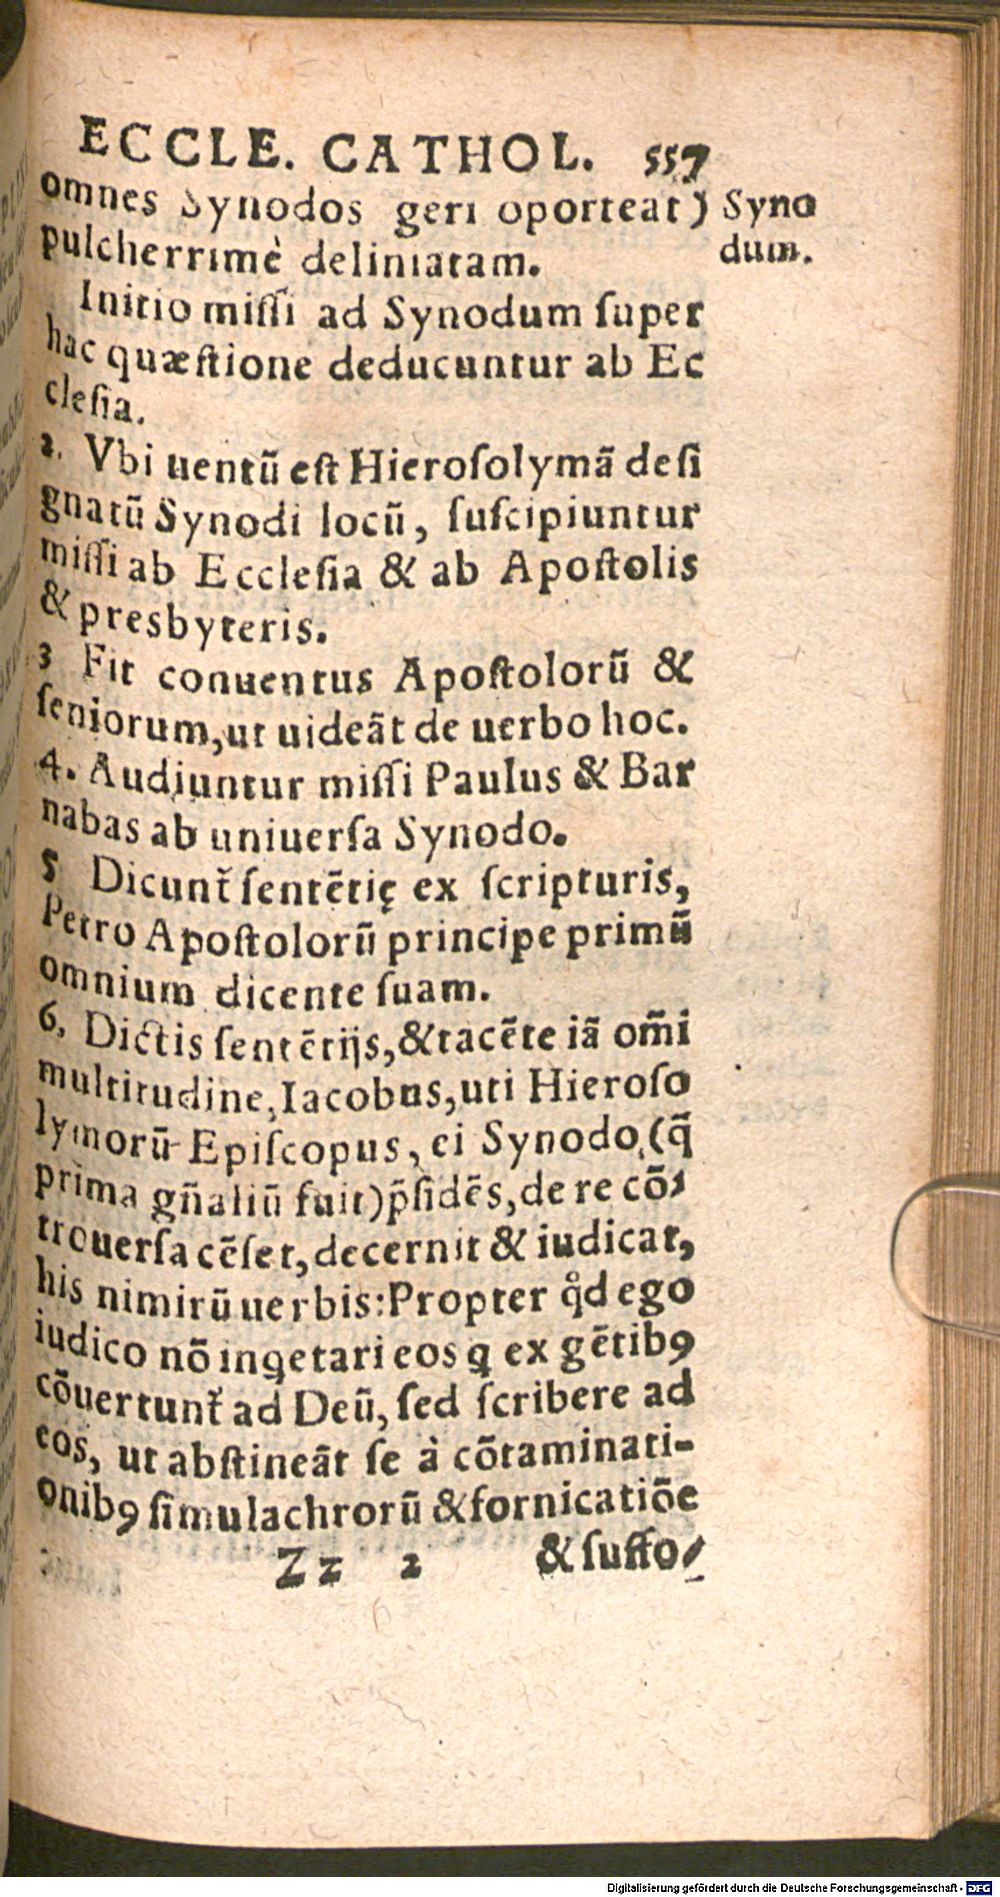 ECCLE. CATHOL. 557
omnes Synodos geri oporteat)
pulcherrimè deliniatam.
Syno
dum.
Initio missi ad Synodum super
hac quæstione deducuntur ab Ec
clesia.
2. Vbi uentū est Hierosolymā desi
gnatū Synodi locū, suscipiuntur
missi ab Ecclesia & ab Apostolis
& presbyteris.
3 Fit conuentus Apostolorū &
seniorum, ut uideāt de uerbo hoc.
4. Audiuntur missi Paulus & Bar
nabas ab uniuersa Synodo.
5 Dicunt᷑ sentētię ex scripturis,
Petro Apostolorū principe primū
omnium dicente suam.
6. Dictis sentētijs, & tacēte iā om̄i
multitudine, Iacobus, uti Hieroso
lymorū Episcopus, ei Synodo (q̄
prima gn̄aliū fuit) p̄sidēs, de re cō⸗
trouersa cēset, decernit & iudicat,
his nimirū uerbis: Propter qd̊ ego
iudico nō inꝗetari eos ꝗ ex gētibꝰ
cōuertunt᷑ ad Deū, sed scribere ad
eos, ut abstineāt se à cōtaminati-
onibꝰ simulachrorū & fornicatiōe
Zz 2 & suffo⸗
Digitalisierung gefördert durch die Deutsche Forschungsgemeinschaft - DFG